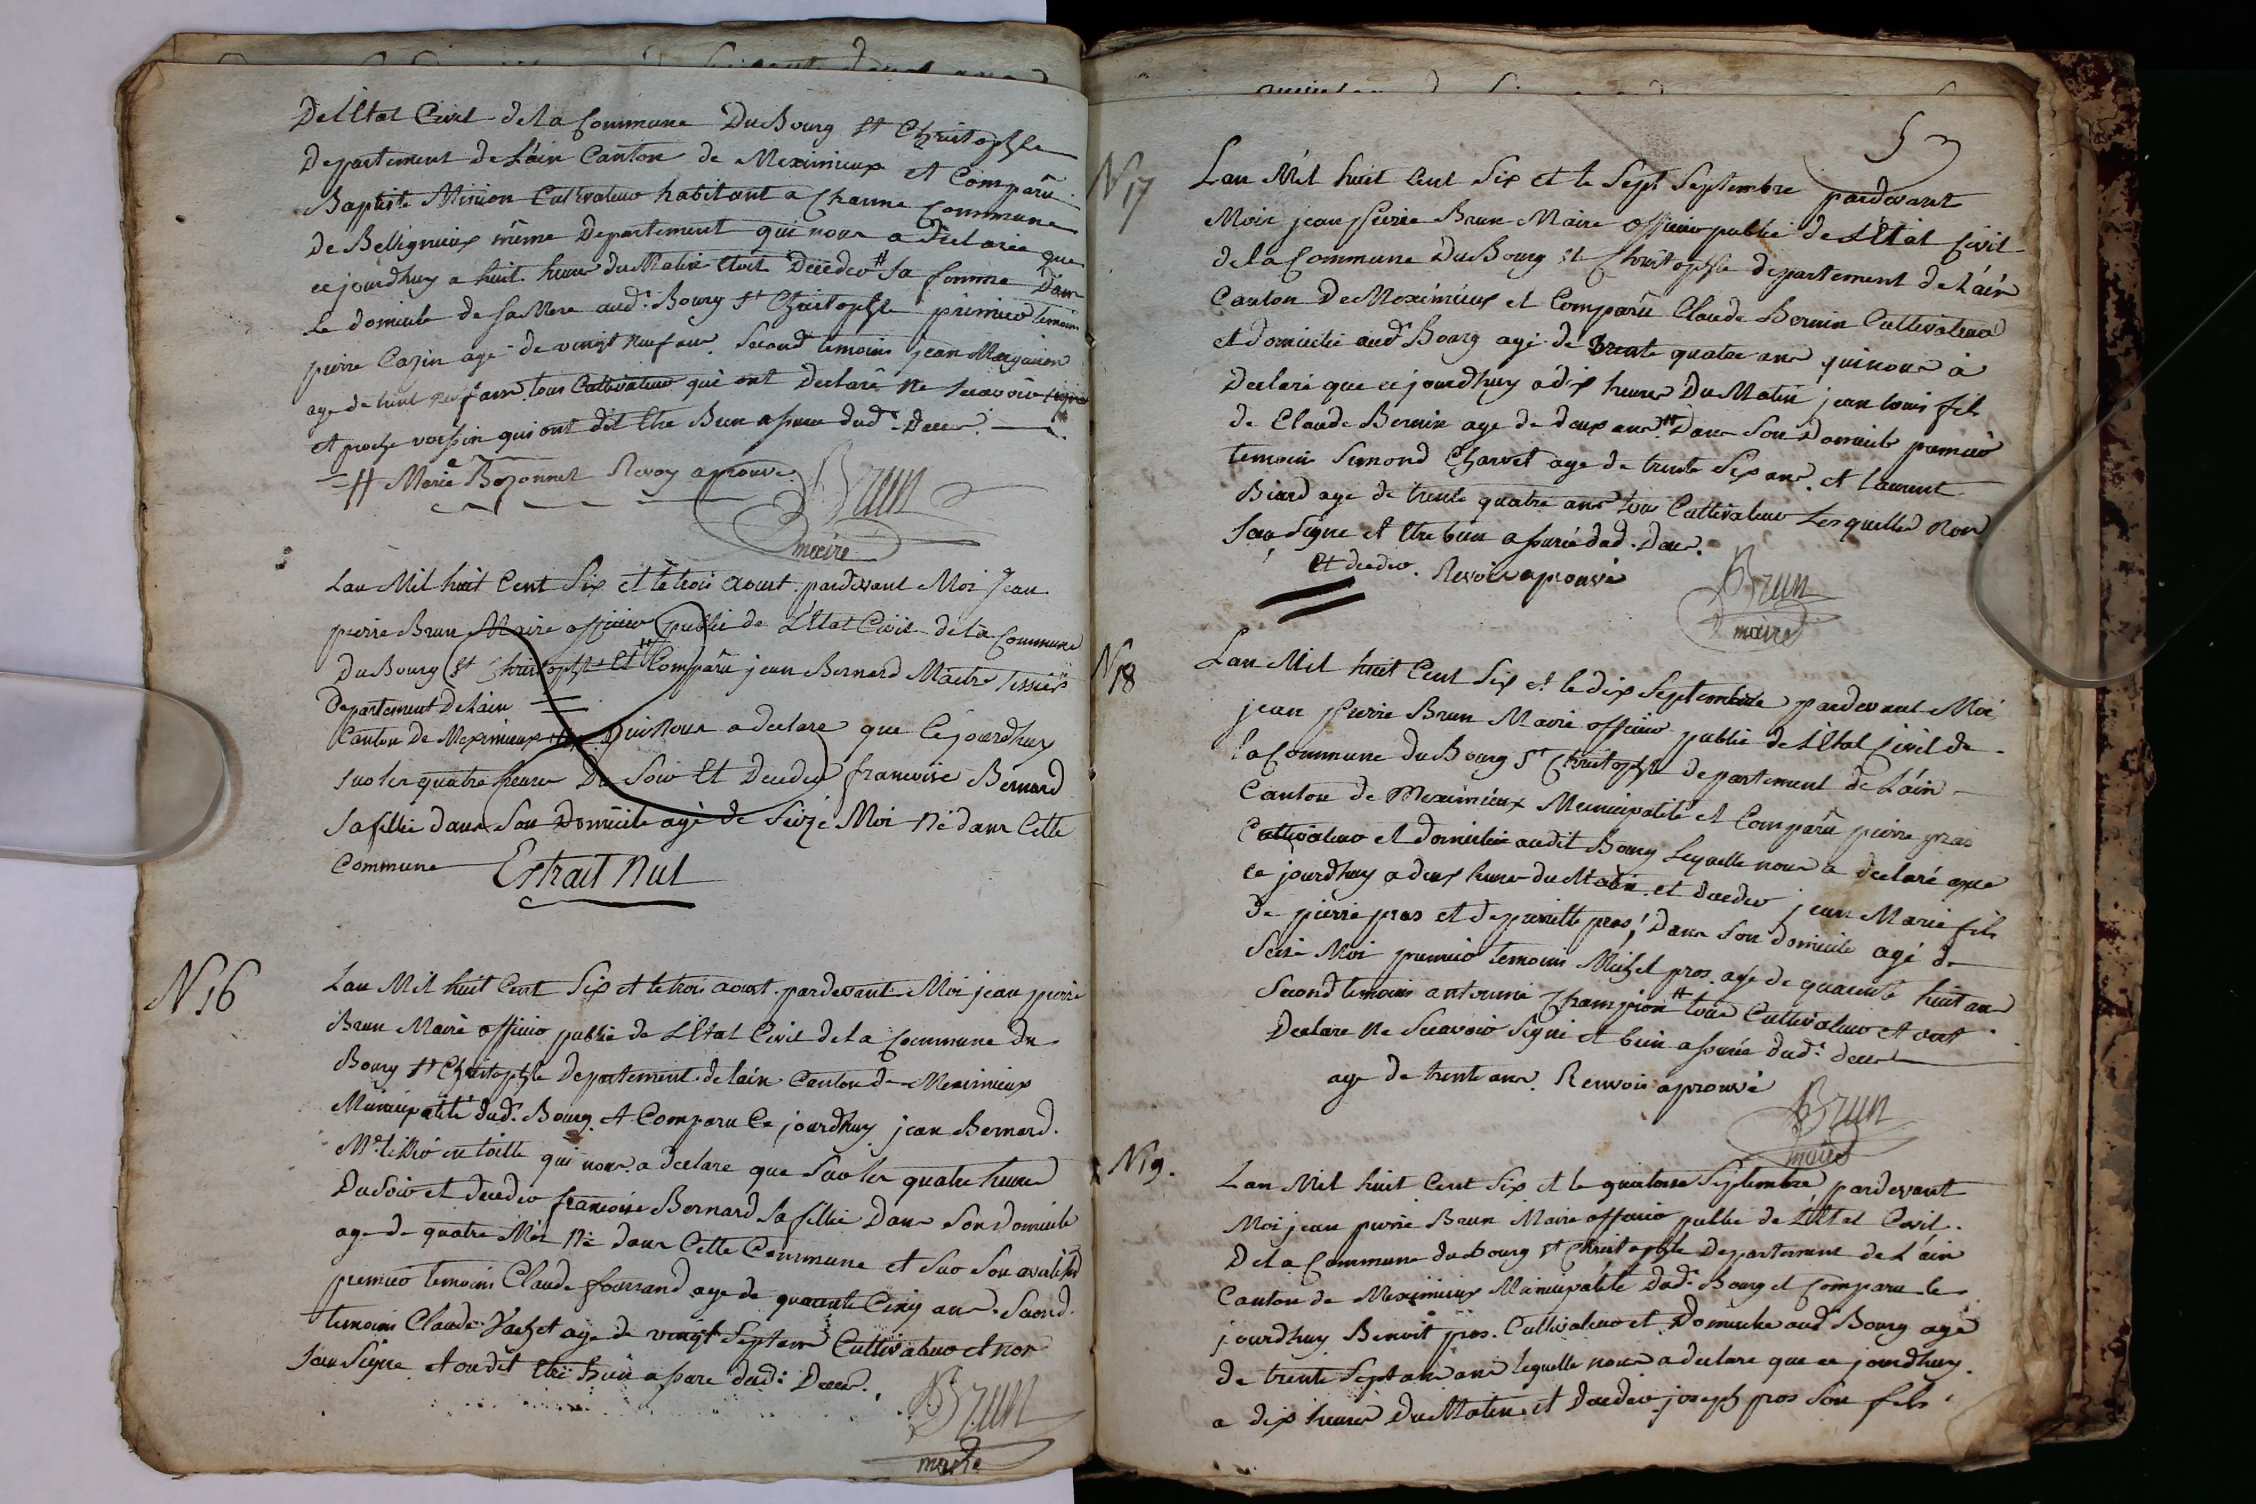 De L'Etat Civil de la Commune Du Bourg St Christophle
Departement de L'ain Canton de Meximieux et Comparû
Baptiste Cultivateur habitant a Charne Commune
De Bellignieux même Departement qui nous a Declarée que
ce jourdhuy a huit heure du Matin Etoit Décédeo # Sa femme Dans
Le domicile de Sa Mere aud. Bourg St Christophle prémieo temoin
pierre Cazin age de vingt neuf ans. Second temoin jean Maganon
age de tous Cultivateuo qui ont Declaré Ne Scavoir signer
et proche voissin qui ont dit Etre Bien assuree dud. Deces.
# Marie Bozonnet Revoy aprouve.
Brun
maire
Lan Mil huit Cent Six et le trois aoust pardevant Moi Jean
pierre Brun Maire officieo public de L'Etat Civil de la Commune
Du Bourg St Christophle Et # Comparû jean Bernard Maitre Tissier
Departement De Lain
Canton De Meximieux qui Nous a declare que Ce jourdhuy
Suo les quatre heures Du Soir Et Decedeo francoise Bernard
Sa fillie dans Son Domicile agé de Seize Moi Né dans Cette
Commune Extrait Nul
N 16
Lan Mil huit Cent Six et le trois aoust pardevant Moi jean pierre
Brun Maire officieo public de L'Etat Civil de la Commune du
Bourg St Christophle Departement de lain Canton de Meximieux
Municipalité dud. Bourg. Et Comparu Ce jourdhuy jean Bernard.
Me tissió en toille qui nous a declare que Suo les quatre heures
Du Soir et decedeo francoise Bernard Sa fillie Dans Son Domicile
age de quatre Moi Né dans Cette Commune et Suo Son
premieo temoins Claude fourrand age de quarante Cinq ans. Second.
temoins Claude Vachet age de vingt Sept ans Cultivateuo et non
Sau Signe et on dit Etre Bien assare dud. Deces.
Brun
maire
5
N 17
Lan Mil huit Cent Six et le Sept Septembre pardevant
Moir jean pierre Brun Maire officieo public de L'Etat Civil
de la Commune Du Bourg St Christophle departement de L'áin
Canton De Meximieux et Comparû Claude Bernin Cultivateuo
et domicilié aud. Bourg agé de trente quatre ans qui nous à
Declaré que ce jourdhuy à dix heures Du Matin jean louis fils
de Claude Bernin age de deux ans # Dans Son Domicile premieo
temoin Simond Charvet age de trente Six ans. et laurent
Biard age de trente quatre ans tous Cultivateuo Lesquelles Non
Sau Signe et Etre bien assurée dud. Deces.
Et decedeo. Revoir aprouvé
Brun
maire
N 18
Lan Mil huit Cent Six et le dix Septembre pardevant Moi
jean pierre Brun Maire officieo public de L'Etat Civil de
la Commune du Bourg St Christophle departement de L'áin
Canton de Meximieux Municipalité et Comparû pierre pras
Cultivateuo et domicilie audit Bourg Lequelle nous a declaré que
ce jourdhuy a deux heures du Matin et decedeo jean Marie fils
de pierre pros et de pras, Dans Son domicile agé de
Seize Moi premieo temoins Michel pros age de quarante huit ans
Second temoins antoinne Champion # tous Cultivateuo et ont
Declare Ne Scavoir Signé et bien assurée dud. deces
age de trente ans. Renvoir aprouvé
Brun
maire
N 19.
Lan Mil huit Cent Six et le quatorze Septembre pardevant
Moi jean pierre Brun Maire officieo public de L'Etat Civil.
De la Commune du bourg St Christophle Departement de L'ain
Canton de Meximieux Municipalité Dud. Bourg et Comparu le
jourdhuy Benoit pros. Cultivateuo et Domicilie aud. Bourg agé
de trente Sept ans lequelle nous a declare que ce jourdhuy.
a dix heures Du Matin et Decedeo joseph pros Son fils